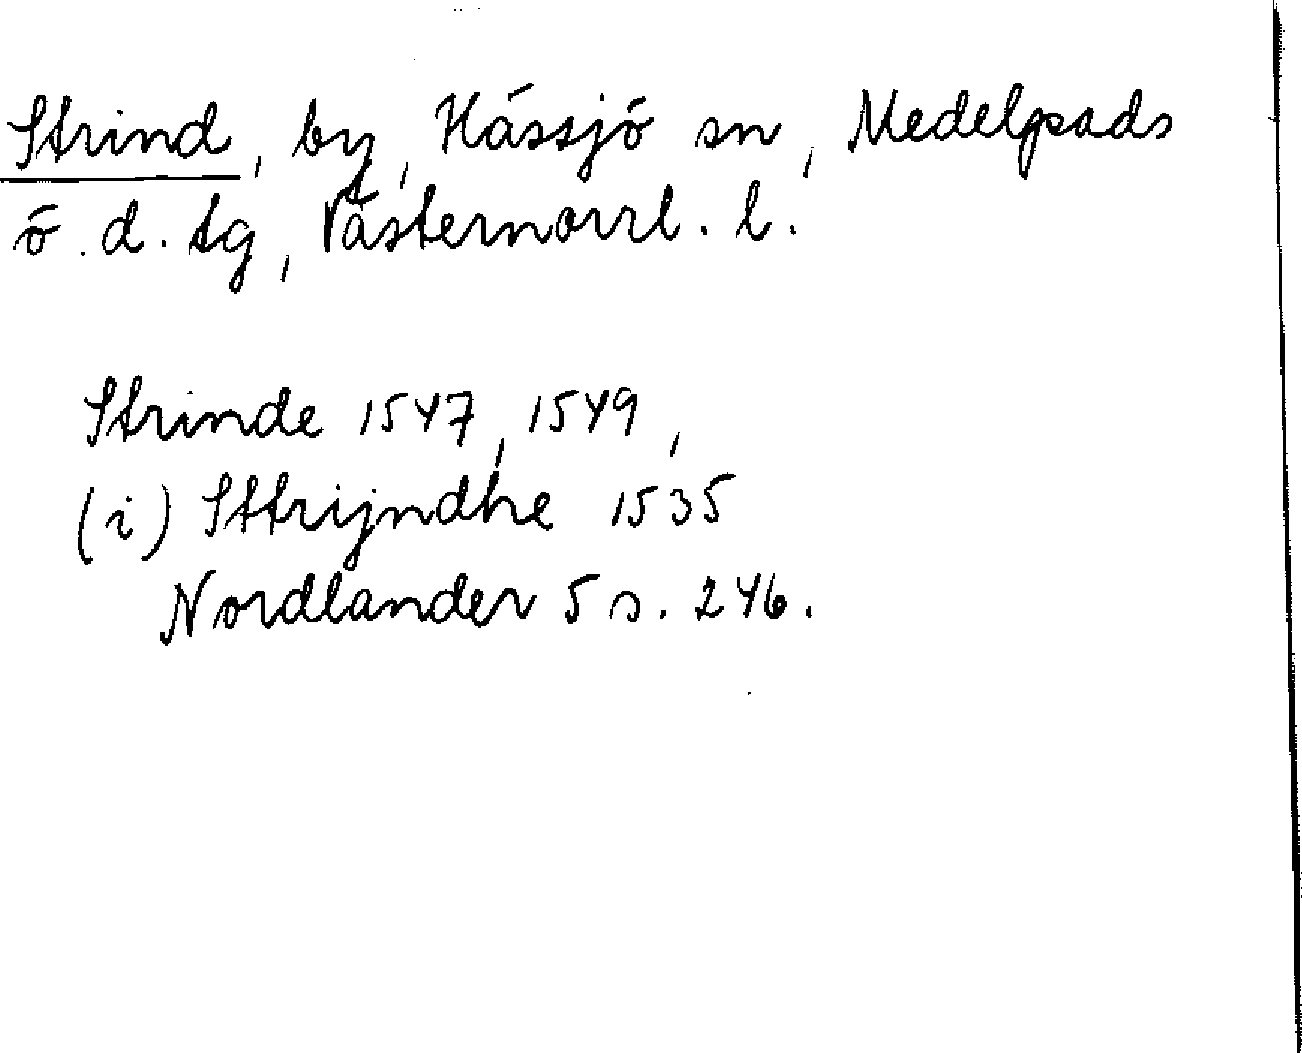 Strind, by, Hässjö sn, Medelpads
ö. d. tg, Västernorrl. l.
Strinde 1547, 1549,
(i) Sttrijndhe 1535
Nordlander 5 s. 246.